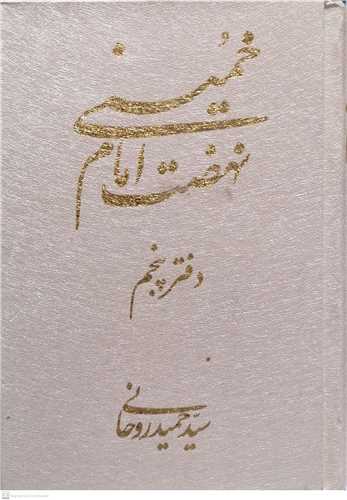 نهضت امام خمینی
دفتر پنجم
سیّد حمید روحانی